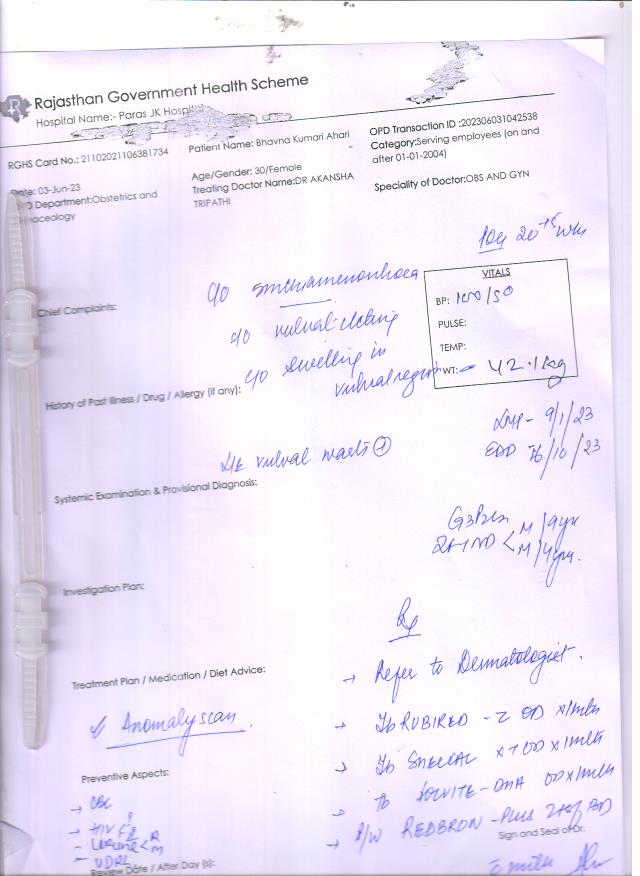 Rajasthan Government Health Scheme
Hospital Name:- Paras JK Hospi
RGHS Card No.: 21102021106381734
Patient Name: Bhavna Kumari Ahari
OPD Transaction ID :202306031042538
Category:Serving employees (on and after 01-01-2004)
Date: 03-Jun-23
Age/Gender: 30/Female
Speciality of Doctor:OBS AND GYN
Department:Obstetrics and
Treating Doctor Name:DR AKANSHA TRIPATHI
VITALS
BP: 100/50
PULSE:
TEMP:
WT:- 42.1kg
Chief Complaints:
c/o 5mthamenorrhoea
c/o vulval itching
c/o swelling in
vulval region
History of Past Illness / Drug / Allergy (if any):
LMP - 9/1/23
EDD 16/10/23
L/E vulval warts +
Systemic Examination & Provisional Diagnosis:
M/9yr
M/4yrs.
Investigation Plan:
Rx
→ Refer to Dermatologist.
Treatment Plan / Medication / Diet Advice:
Anomaly scan.
→ Tb RUBIRED - Z OD x 1mth
→ Tb x 1 OD x 1mth
Preventive Aspects:
→ Tb SOLVITE-DHA OD x 1mth
→ CBC
→ HIV
→ REDBRON-Plus 2tsf BD
Sign and Seal of Dr.
- VDRL
Review Date / After Day (s):